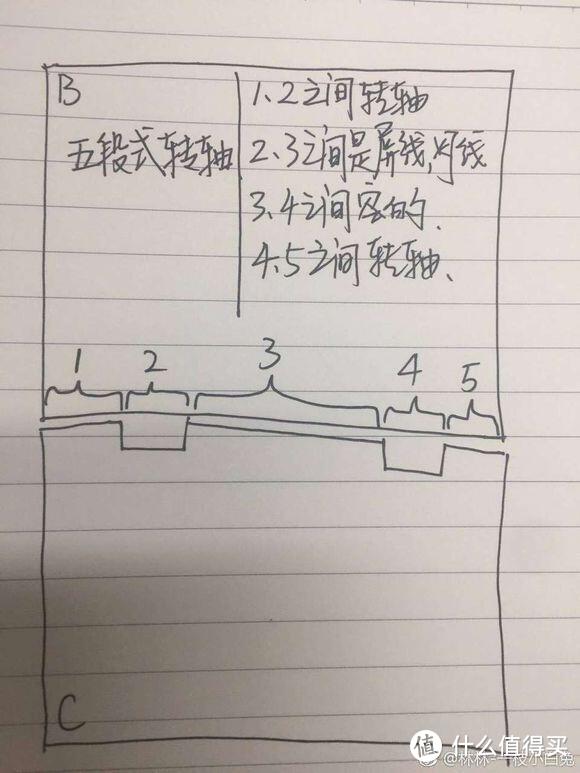 B
五段式转轴
1、2之间转轴
2、3之间是屏线、
3、4之间空的、
4、5之间转轴、
1 2 3 4 5
C
值 什么值得买
@林林-一枝小白兔